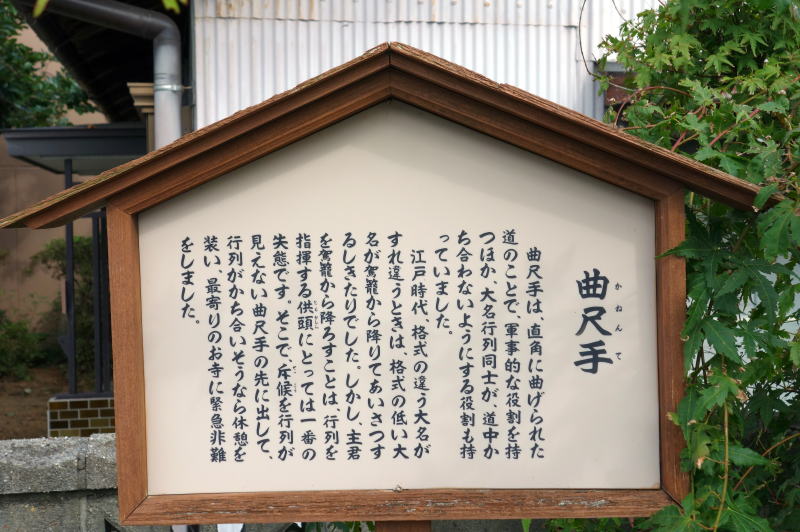 曲尺手
かねんて
曲尺手は、直角に曲げられた
道のことで、軍事的な役割を持
つほか、大名行列同士が、道中か
ち合わないようにする役割も持
っていました。
江戸時代、格式の違う大名が
すれ違うときは、格式の低い大
名が駕籠から降りてあいさつす
るしきたりでした。しかし、主君
を駕籠から降ろすことは、行列を
指揮する供頭にとっては一番の
失態です。そこで、斥候を行列が
見えない曲尺手の先に出して、
行列がかち合いそうなら休憩を
装い、最寄りのお寺に緊急非難
をしました。